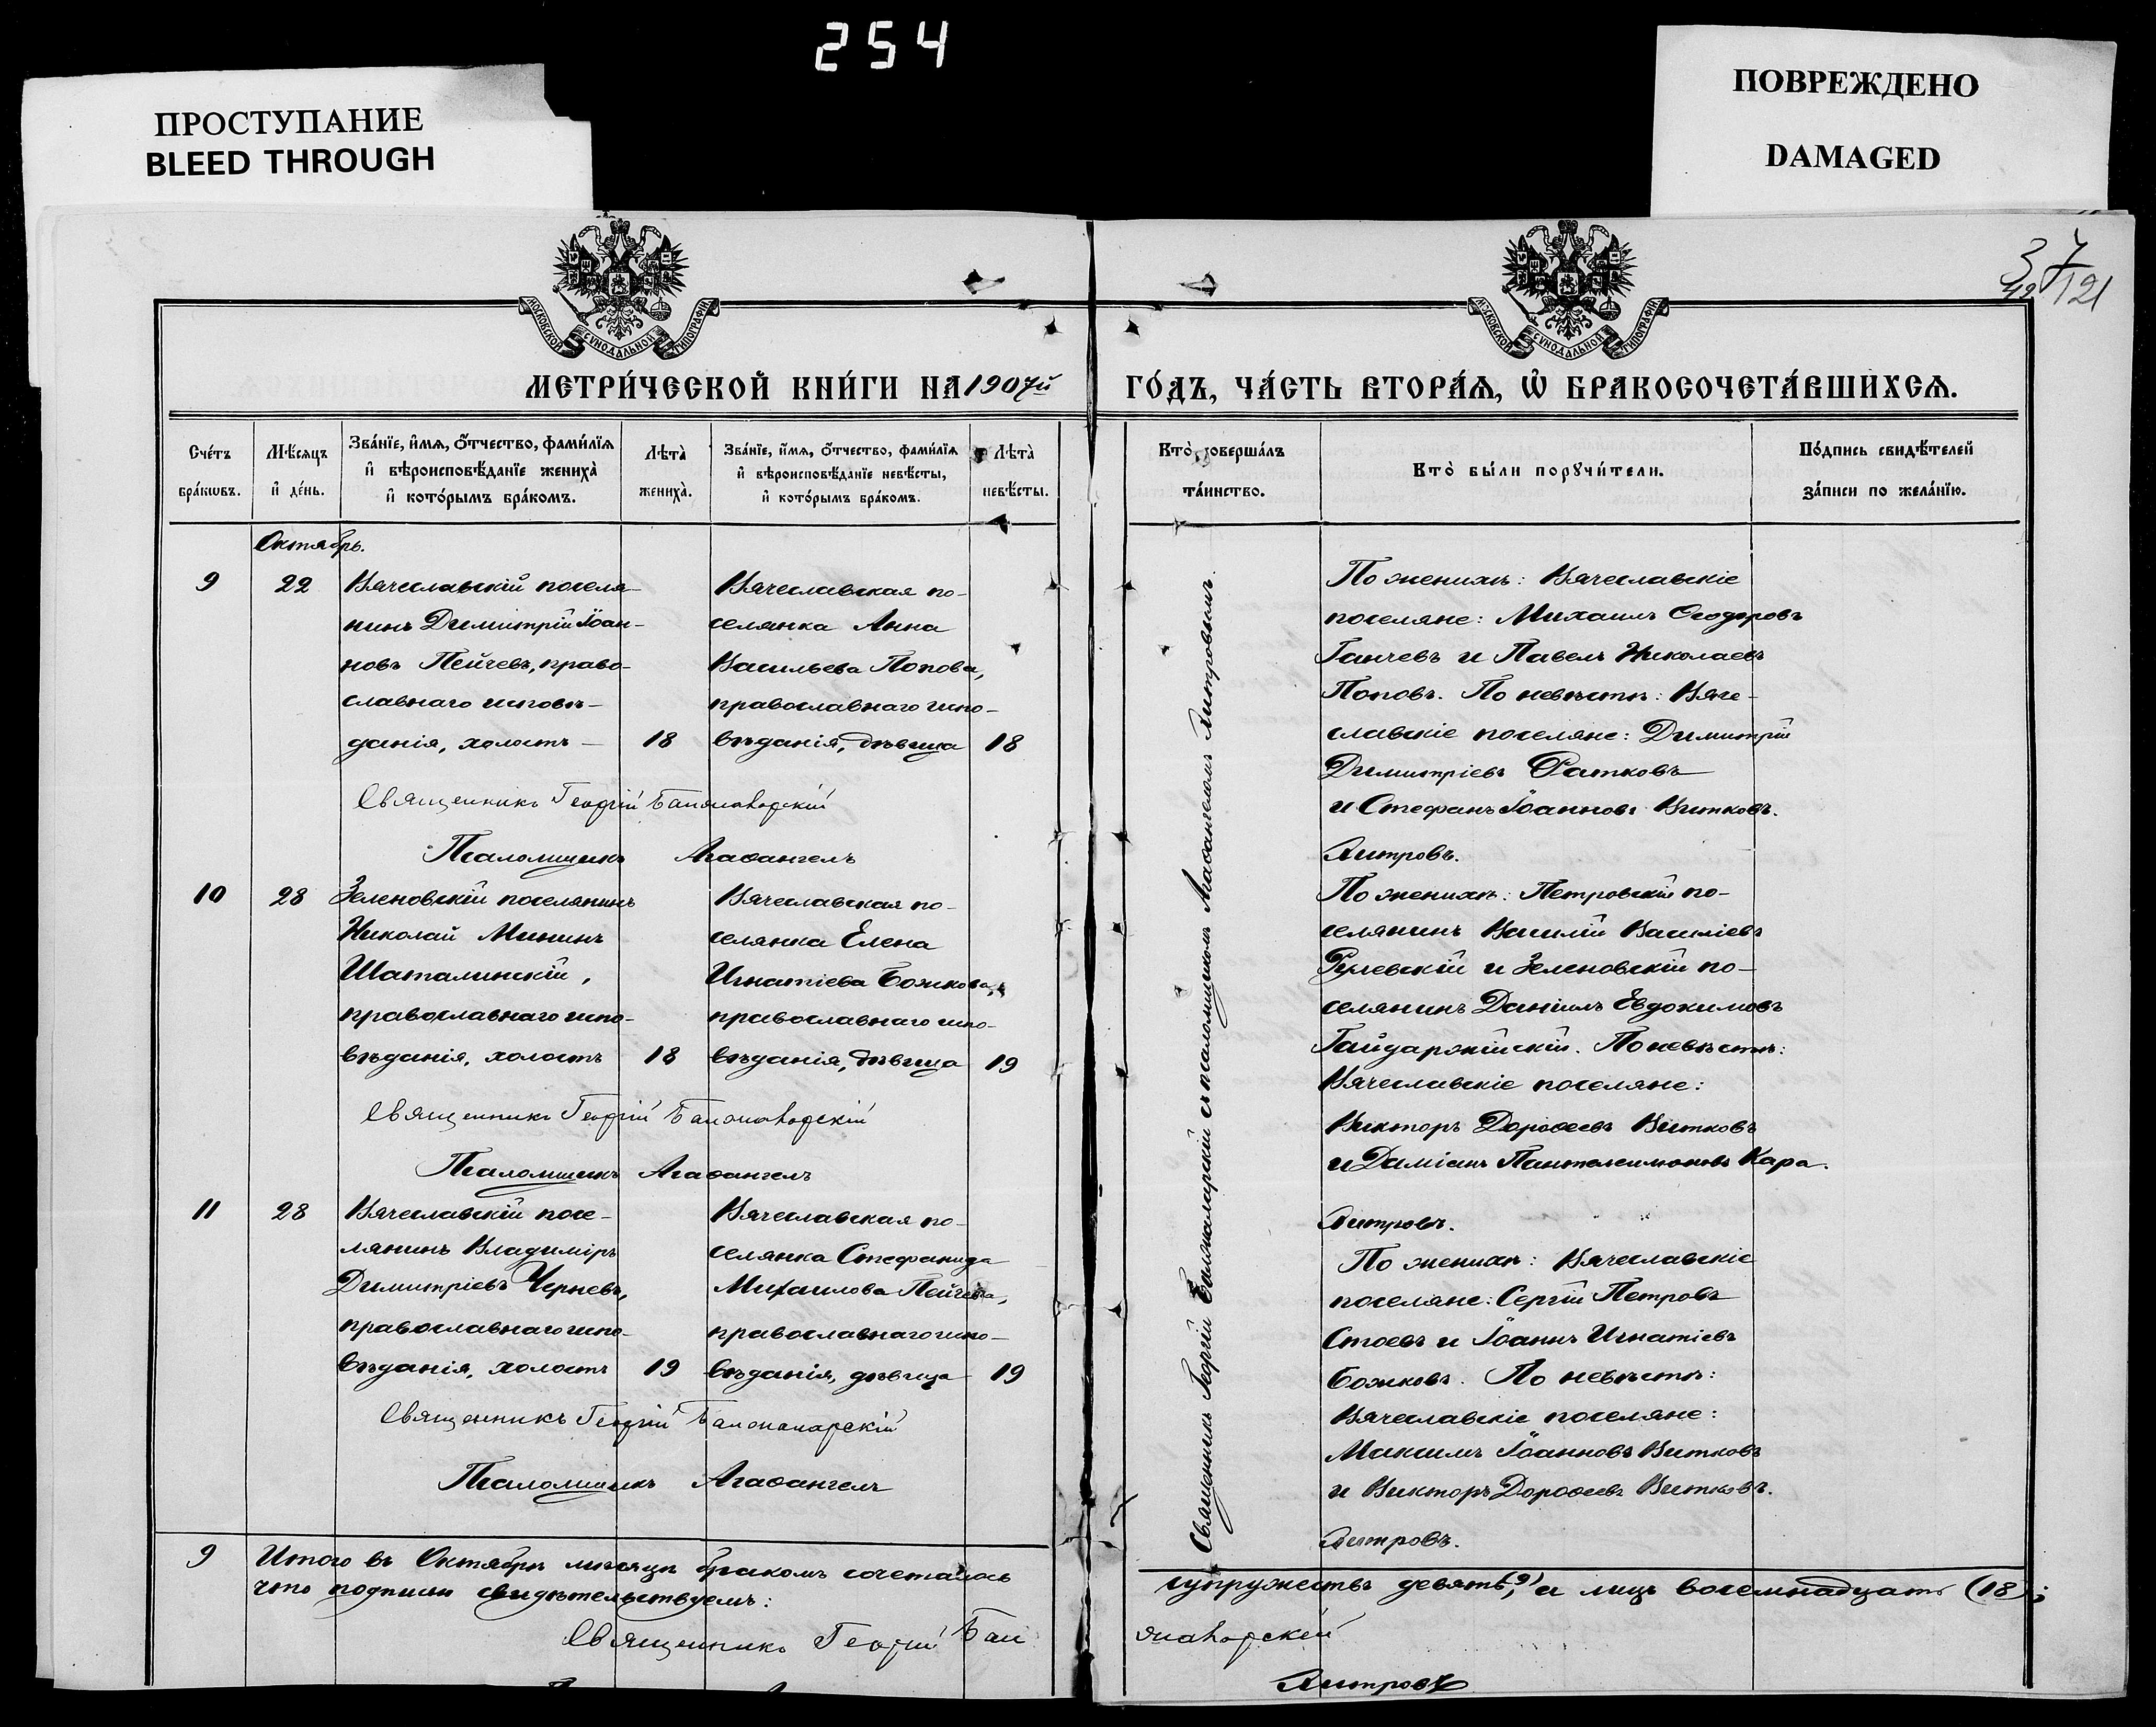 254
ПРОСТУПАНИЕ
BLEED THROUGH
ПОВРЕЖДЕНО
DAMAGED
МОСКОВСКОЙ СѴНОДАЛЬНОЙ ТИПОГРАФІИ
МОСКОВСКОЙ СѴНОДАЛЬНОЙ ТИПОГРАФІИ
37
121
МЕТРИ́ЧЕСКОЙ КНИ́ГИ НА 1907й
ГО́ДЪ, ЧА́СТЬ ВТОРА́Ѧ, Ѽ БРАКОСОЧЕТА́ВШИХСѦ.
Сче́тъ
бра́кѡвъ.
Мѣ́сѧцъ
и҆ де́нь.
Зва́нїе, и҆́мѧ, о҆́тчество, фами́лїѧ
и҆ вѣроисповѣ́данїе жениха̀
и҆ кото́рымъ бра́комъ.
Лѣта̀
жениха̀.
Зва́нїе, и҆́мѧ, о҆́тчество, фами́лїѧ
и҆ вѣроисповѣ́данїе невѣ́сты,
и҆ кото́рымъ бра́комъ.
Лѣта̀
невѣ́сты.
Кто̀ соверша́лъ
та́инство.
Кто̀ бы́ли порꙋчи́тели.
По́дпись свидѣ́телей
за́писи по жела́нїю.
Октябрь.
9
22
Вячеславскій поселя-
нинъ Димитрій Іоан-
новъ Пейчевъ, право-
славнаго исповѣ-
данія, холостъ —
18
Вячеславская по-
селянка Анна
Васильева Попова,
православнаго испо-
вѣданія, дѣвица
18
По женихѣ: Вячеславскіе
поселяне: Михаилъ Ѳеодоровъ
Ганчевъ и Павелъ Николаевъ
Поповъ. По невѣстѣ: Вяче-
славскіе поселяне: Димитрій
Димитріевъ Ратковъ
и Стефанъ Іоанновъ Витковъ.
Священникъ Георгій
Псаломщикъ Агаѳангелъ
Хитровъ.
10
28
Зеленовскій поселянинъ
Николай Мининъ
Шаталинскій,
православнаго испо-
вѣданія, холостъ
18
Вячеславская по-
селянка Елена
Игнатіева Божкова,
православнаго испо-
вѣданія, дѣвица
19
По женихѣ: Петровскій по-
селянинъ Василій Василіевъ
и Зеленовскій по-
селянинъ Даніилъ Евдокимовъ
Гайдаржійскій. По невѣстѣ:
Вячеславскіе поселяне:
Викторъ Дороѳеевъ Витковъ
и Даміанъ Пантелеимоновъ Кара.
Священникъ Георгій
Псаломщикъ Агаѳангелъ
Хитровъ.
11
28
Вячеславскій посе-
лянинъ Владиміръ
Димитріевъ Черневъ,
православнаго испо-
вѣданія, холостъ
19
Вячеславская по-
селянка Стефанида
Михаилова Пейчева,
православнаго испо-
вѣданія, дѣвица
19
По женихѣ: Вячеславскіе
поселяне: Сергій Петровъ
Стоевъ и Іоаннъ Игнатіевъ
Божковъ. По невѣстѣ:
Вячеславскіе поселяне:
Максимъ Іоанновъ Витковъ
и Викторъ Дороѳеевъ Витковъ.
Священникъ Георгій
Псаломщикъ Агаѳангелъ
Хитровъ.
Священникъ Георгій съ псаломщикомъ Агаѳангеломъ Хитровымъ.
9
Итого въ Октябрѣ мѣсяцѣ бракомъ сочеталось
супружествъ девять (9), и лицъ восемнадцать (18);
что подписью свидѣтельствуемъ:
Священникъ Георгій
Хитровъ